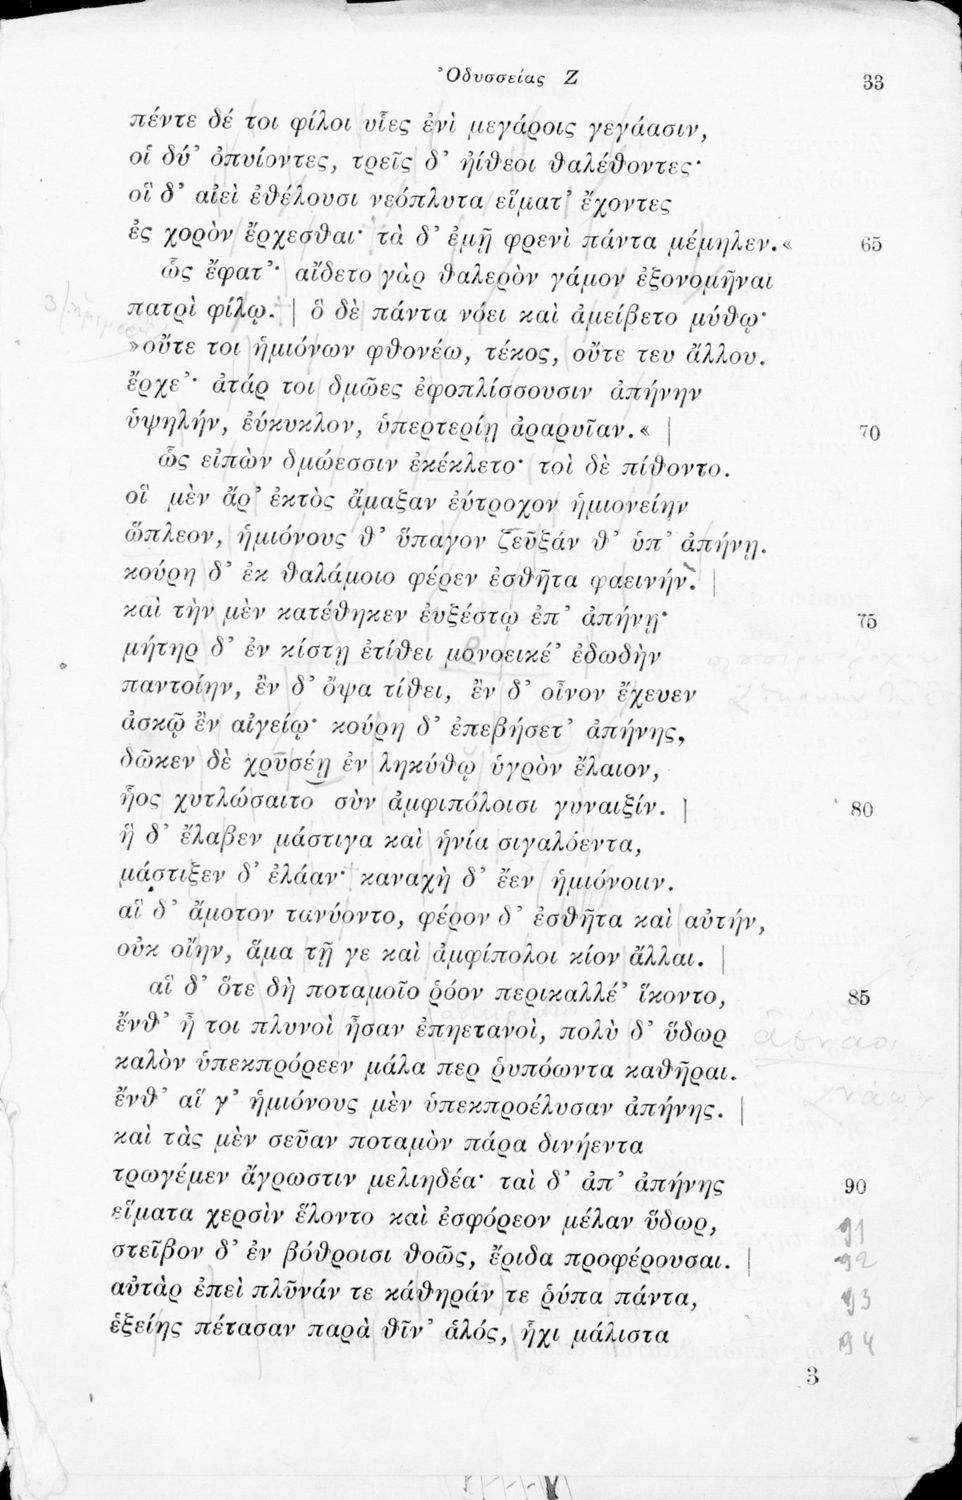 Ὀδυσσείας Ζ 33
πέντε δέ τοι φίλοι υἷες ἐνὶ μεγάροις γεγάασιν,
οἱ δύ' ὀπυίοντες, τρεῖς δ' ἠίθεοι θαλέθοντες·
οἳ δ' αἰεὶ ἐθέλουσι νεόπλυτα εἵματ' ἔχοντες
ἐς χορὸν ἔρχεσθαι· τὰ δ' ἐμῇ φρενὶ πάντα μέμηλεν.« 65
ὣς ἔφατ'· αἴδετο γὰρ θαλερὸν γάμον ἐξονομῆναι
πατρὶ φίλῳ. | ὃ δὲ πάντα νόει καὶ ἀμείβετο μύθῳ·
»οὔτε τοι ἡμιόνων φθονέω, τέκος, οὔτε τευ ἄλλου.
ἔρχε'· ἀτάρ τοι δμῶες ἐφοπλίσσουσιν ἀπήνην
ὑψηλήν, ἐύκυκλον, ὑπερτερίῃ ἀραρυῖαν.« | 70
ὣς εἰπὼν δμώεσσιν ἐκέκλετο· τοὶ δὲ πίθοντο.
οἳ μὲν ἄρ' ἐκτὸς ἄμαξαν ἐύτροχον ἡμιονείην
ὥπλεον, ἡμιόνους θ' ὕπαγον ζεῦξάν θ' ὑπ' ἀπήνῃ.
κούρη δ' ἐκ θαλάμοιο φέρεν ἐσθῆτα φαεινήν. |
καὶ τὴν μὲν κατέθηκεν ἐυξέστῳ ἐπ' ἀπήνῃ· 75
μήτηρ δ' ἐν κίστῃ ἐτίθει μονοεικέ' ἐδωδὴν
παντοίην, ἒν δ' ὄψα τίθει, ἒν δ' οἶνον ἔχευεν
ἀσκῷ ἒν αἰγείῳ· κούρη δ' ἐπεβήσετ' ἀπήνης,
δῶκεν δὲ χρυσέῃ ἐν ληκύθῳ ὑγρὸν ἔλαιον,
ἧος χυτλώσαιτο σὺν ἀμφιπόλοισι γυναιξίν. | 80
ἣ δ' ἔλαβεν μάστιγα καὶ ἡνία σιγαλόεντα,
μάστιξεν δ' ἐλάαν· καναχὴ δ' ἔεν ἡμιόνοιιν.
αἳ δ' ἄμοτον τανύοντο, φέρον δ' ἐσθῆτα καὶ αὐτήν,
οὐκ οἴην, ἅμα τῇ γε καὶ ἀμφίπολοι κίον ἄλλαι. |
αἳ δ' ὅτε δὴ ποταμοῖο ῥόον περικαλλέ' ἵκοντο, 85
ἔνθ' ἦ τοι πλυνοὶ ἦσαν ἐπηετανοί, πολὺ δ' ὕδωρ
καλὸν ὑπεκπρόρεεν μάλα περ ῥυπόωντα καθῆραι.
ἔνθ' αἵ γ' ἡμιόνους μὲν ὑπεκπροέλυσαν ἀπήνης. |
καὶ τὰς μὲν σεῦαν ποταμὸν πάρα δινήεντα
τρωγέμεν ἄγρωστιν μελιηδέα· ταὶ δ' ἀπ' ἀπήνης 90
εἵματα χερσὶν ἕλοντο καὶ ἐσφόρεον μέλαν ὕδωρ, 91
στεῖβον δ' ἐν βόθροισι θοῶς, ἔριδα προφέρουσαι. | 92
αὐτὰρ ἐπεὶ πλῦνάν τε κάθηράν τε ῥύπα πάντα, 93
ἑξείης πέτασαν παρὰ θῖν' ἁλός, ἧχι μάλιστα 94
3